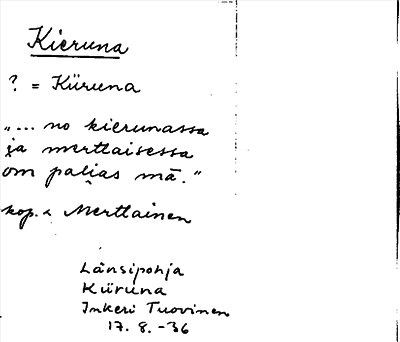 Kieruna
? = Kiiruna
„... no kierunassa
ja merttaisessa
om paljas mā."
kop. < Merttainen
Länsipohja
Kiiruna
Inkeri Tuovinen
17. 8. -36